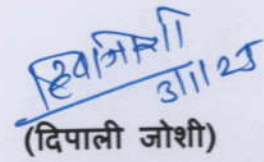 3/11/25
(दिपाली जोशी)